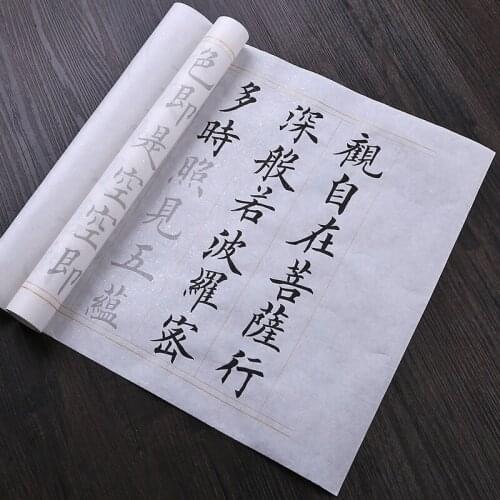 觀自在菩薩行
深般若波羅密
多時照見五蘊
色即是空空即